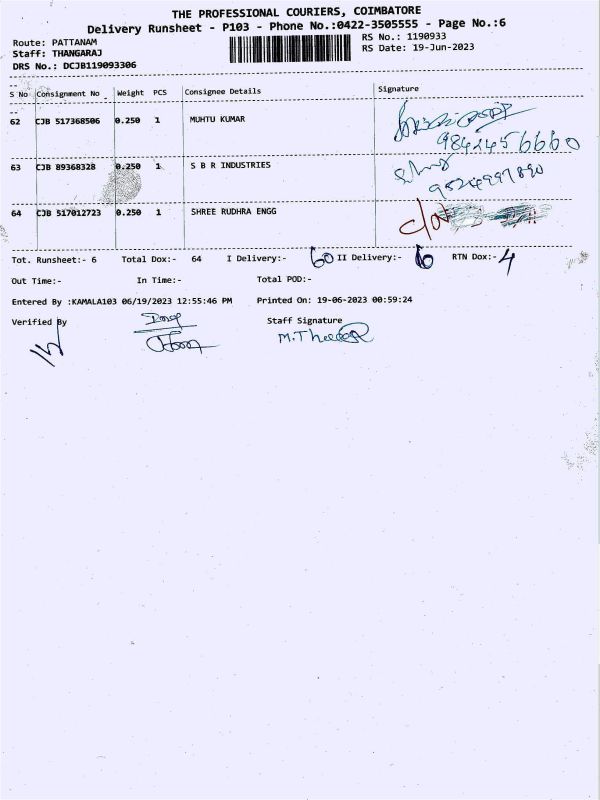 THE PROFESSIONAL COURIERS, COIMBATORE
Delivery Runsheet - P103 - Phone No.:0422-3505555 - Page No.:6
Route: PATTANAM
Staff: THANGARAJ
DRS No.: DCJB119093306
RS No.: 1190933
RS Date: 19-Jun-2023
S No Consignment No Weight PCS Consignee Details Signature
62 CJB 517368506 0.250 1 MUHTU KUMAR
63 CJB 89368328 0.250 1 S B R INDUSTRIES
64 CJB 517012723 0.250 1 SHREE RUDHRA ENGG
Tot. Runsheet:- 6 Total Dox:- 64 I Delivery:- 60 II Delivery:- RTN Dox:- 4
Out Time:- In Time:- Total POD:-
Entered By :KAMALA103 06/19/2023 12:55:46 PM Printed On: 19-06-2023 00:59:24
Verified By Staff Signature